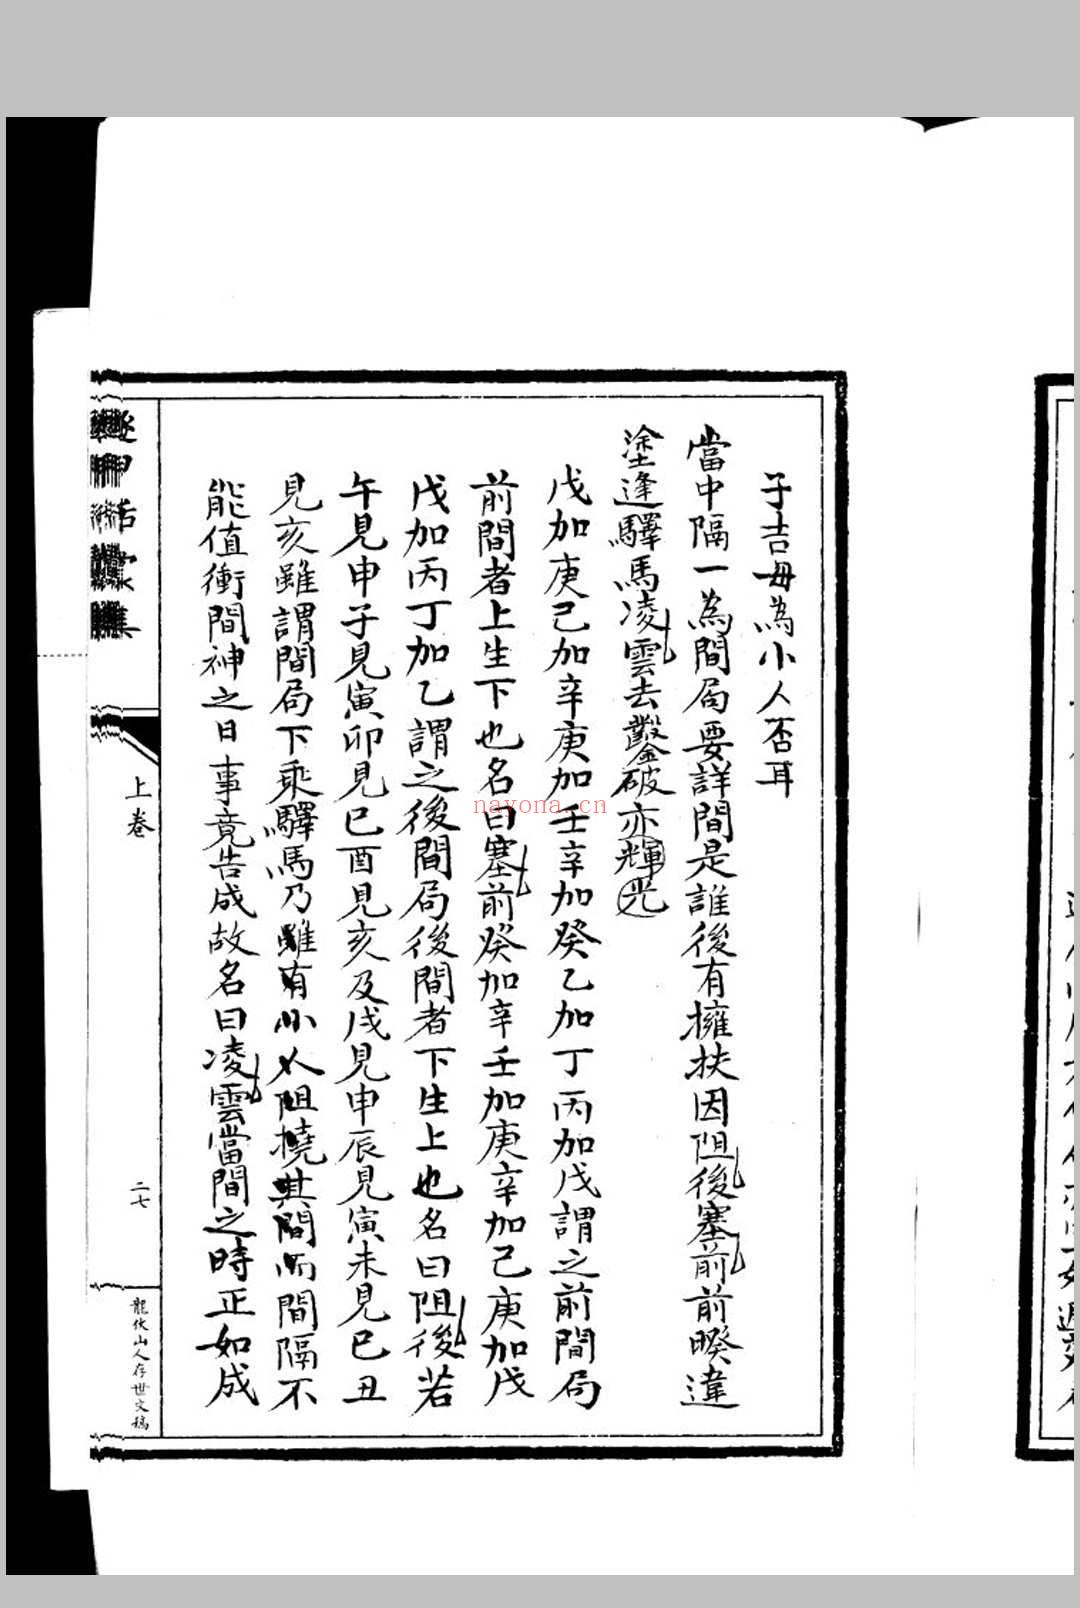 子吉毋為小人否耳
當中隔一為間局要詳間是誰後有擁扶因阻後塞前前暌違
塗逢驛馬凌雲去鑿破亦輝光
戊加庚己加辛庚加壬辛加癸乙加丁丙加戊謂之前間局
前間者上生下也名曰塞前癸加辛壬加庚辛加己庚加戊
戊加丙丁加乙謂之後間局後間者下生上也名曰阻後若
午見申子見寅卯見巳酉見亥及戌見申辰見寅未見巳丑
見亥雖謂間局下乘驛馬乃雖有小人阻撓其間而間隔不
能值衝間神之日事竟告成故名曰凌雲當間之時正如成
上卷
二七
龍伏山人存世文稿
nayona.cn